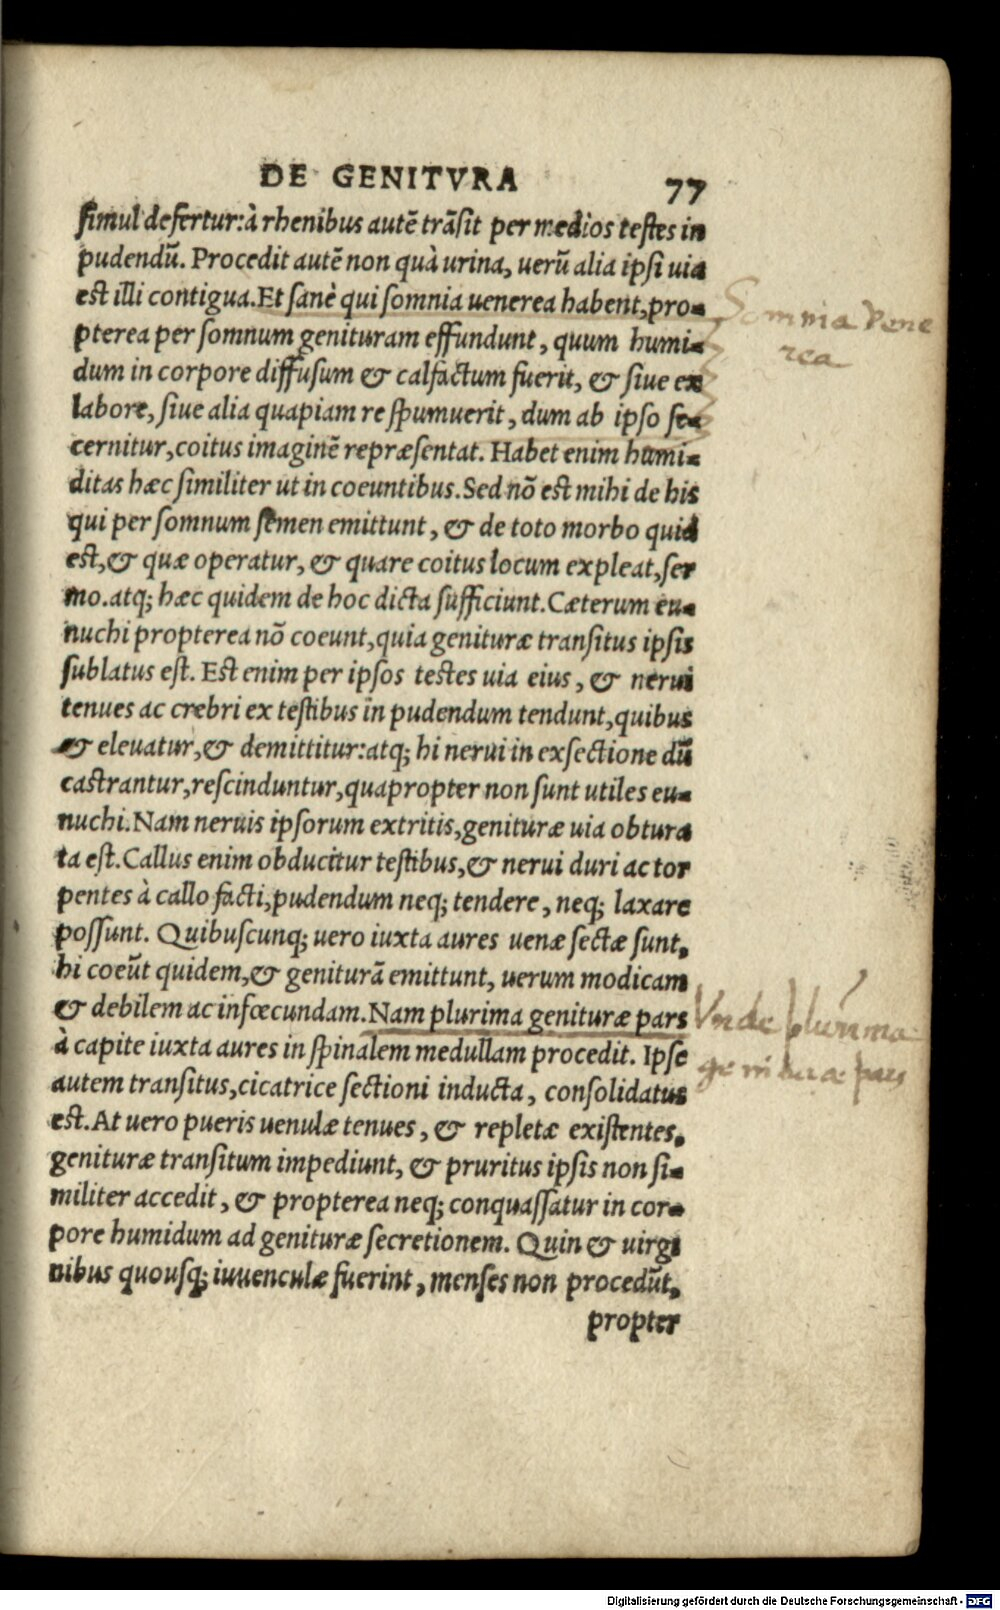 DE GENITVRA 77
simul defertur:à rhenibus autẽ trãsit per medios testes in
pudendũ. Procedit autẽ non quà urina, uerũ alia ipsi uia
est illi contigua.Et sanè qui somnia uenerea habent,pro=
pterea per somnum genituram effundunt, quum humi=
dum in corpore diffusum & calfactum fuerit, & siue ex
labore, siue alia quapiam re spumuerit, dum ab ipso se=
cernitur,coitus imaginẽ repræsentat. Habet enim humi=
ditas hæc similiter ut in coeuntibus.Sed nõ est mihi de his
qui per somnum semen emittunt, & de toto morbo quid
est,& quæ operatur, & quare coitus locum expleat,ser
mo.atq; hæc quidem de hoc dicta sufficiunt.Cæterum eu=
nuchi propterea nõ coeunt,quia genituræ transitus ipsis
sublatus est. Est enim per ipsos testes uia eius, & nerui
tenues ac crebri ex testibus in pudendum tendunt,quibus
& eleuatur,& demittitur:atq; hi nerui in exsectione dũ
castrantur,rescinduntur,quapropter non sunt utiles eu=
nuchi.Nam neruis ipsorum extritis,genituræ uia obtura
ta est.Callus enim obducitur testibus,& nerui duri ac tor
pentes à callo facti,pudendum neq; tendere, neq; laxare
possunt. Quibuscunq; uero iuxta aures uenæ sectæ sunt,
hi coeũt quidem,& geniturã emittunt, uerum modicam
& debilem ac infœcundam.Nam plurima genituræ pars
à capite iuxta aures in spinalem medullam procedit. Ipse
autem transitus,cicatrice sectioni inducta, consolidatus
est.At uero pueris uenulæ tenues, & repletæ existentes,
genituræ transitum impediunt, & pruritus ipsis non si=
militer accedit, & propterea neq; conquassatur in cor=
pore humidum ad genituræ secretionem. Quin & uirgi
nibus quousq; iuuenculæ fuerint, menses non procedũt,
propter
Somnia Vene
rea
Vnde plurima
genituræ pars
Digitalisierung gefördert durch die Deutsche Forschungsgemeinschaft - DFG